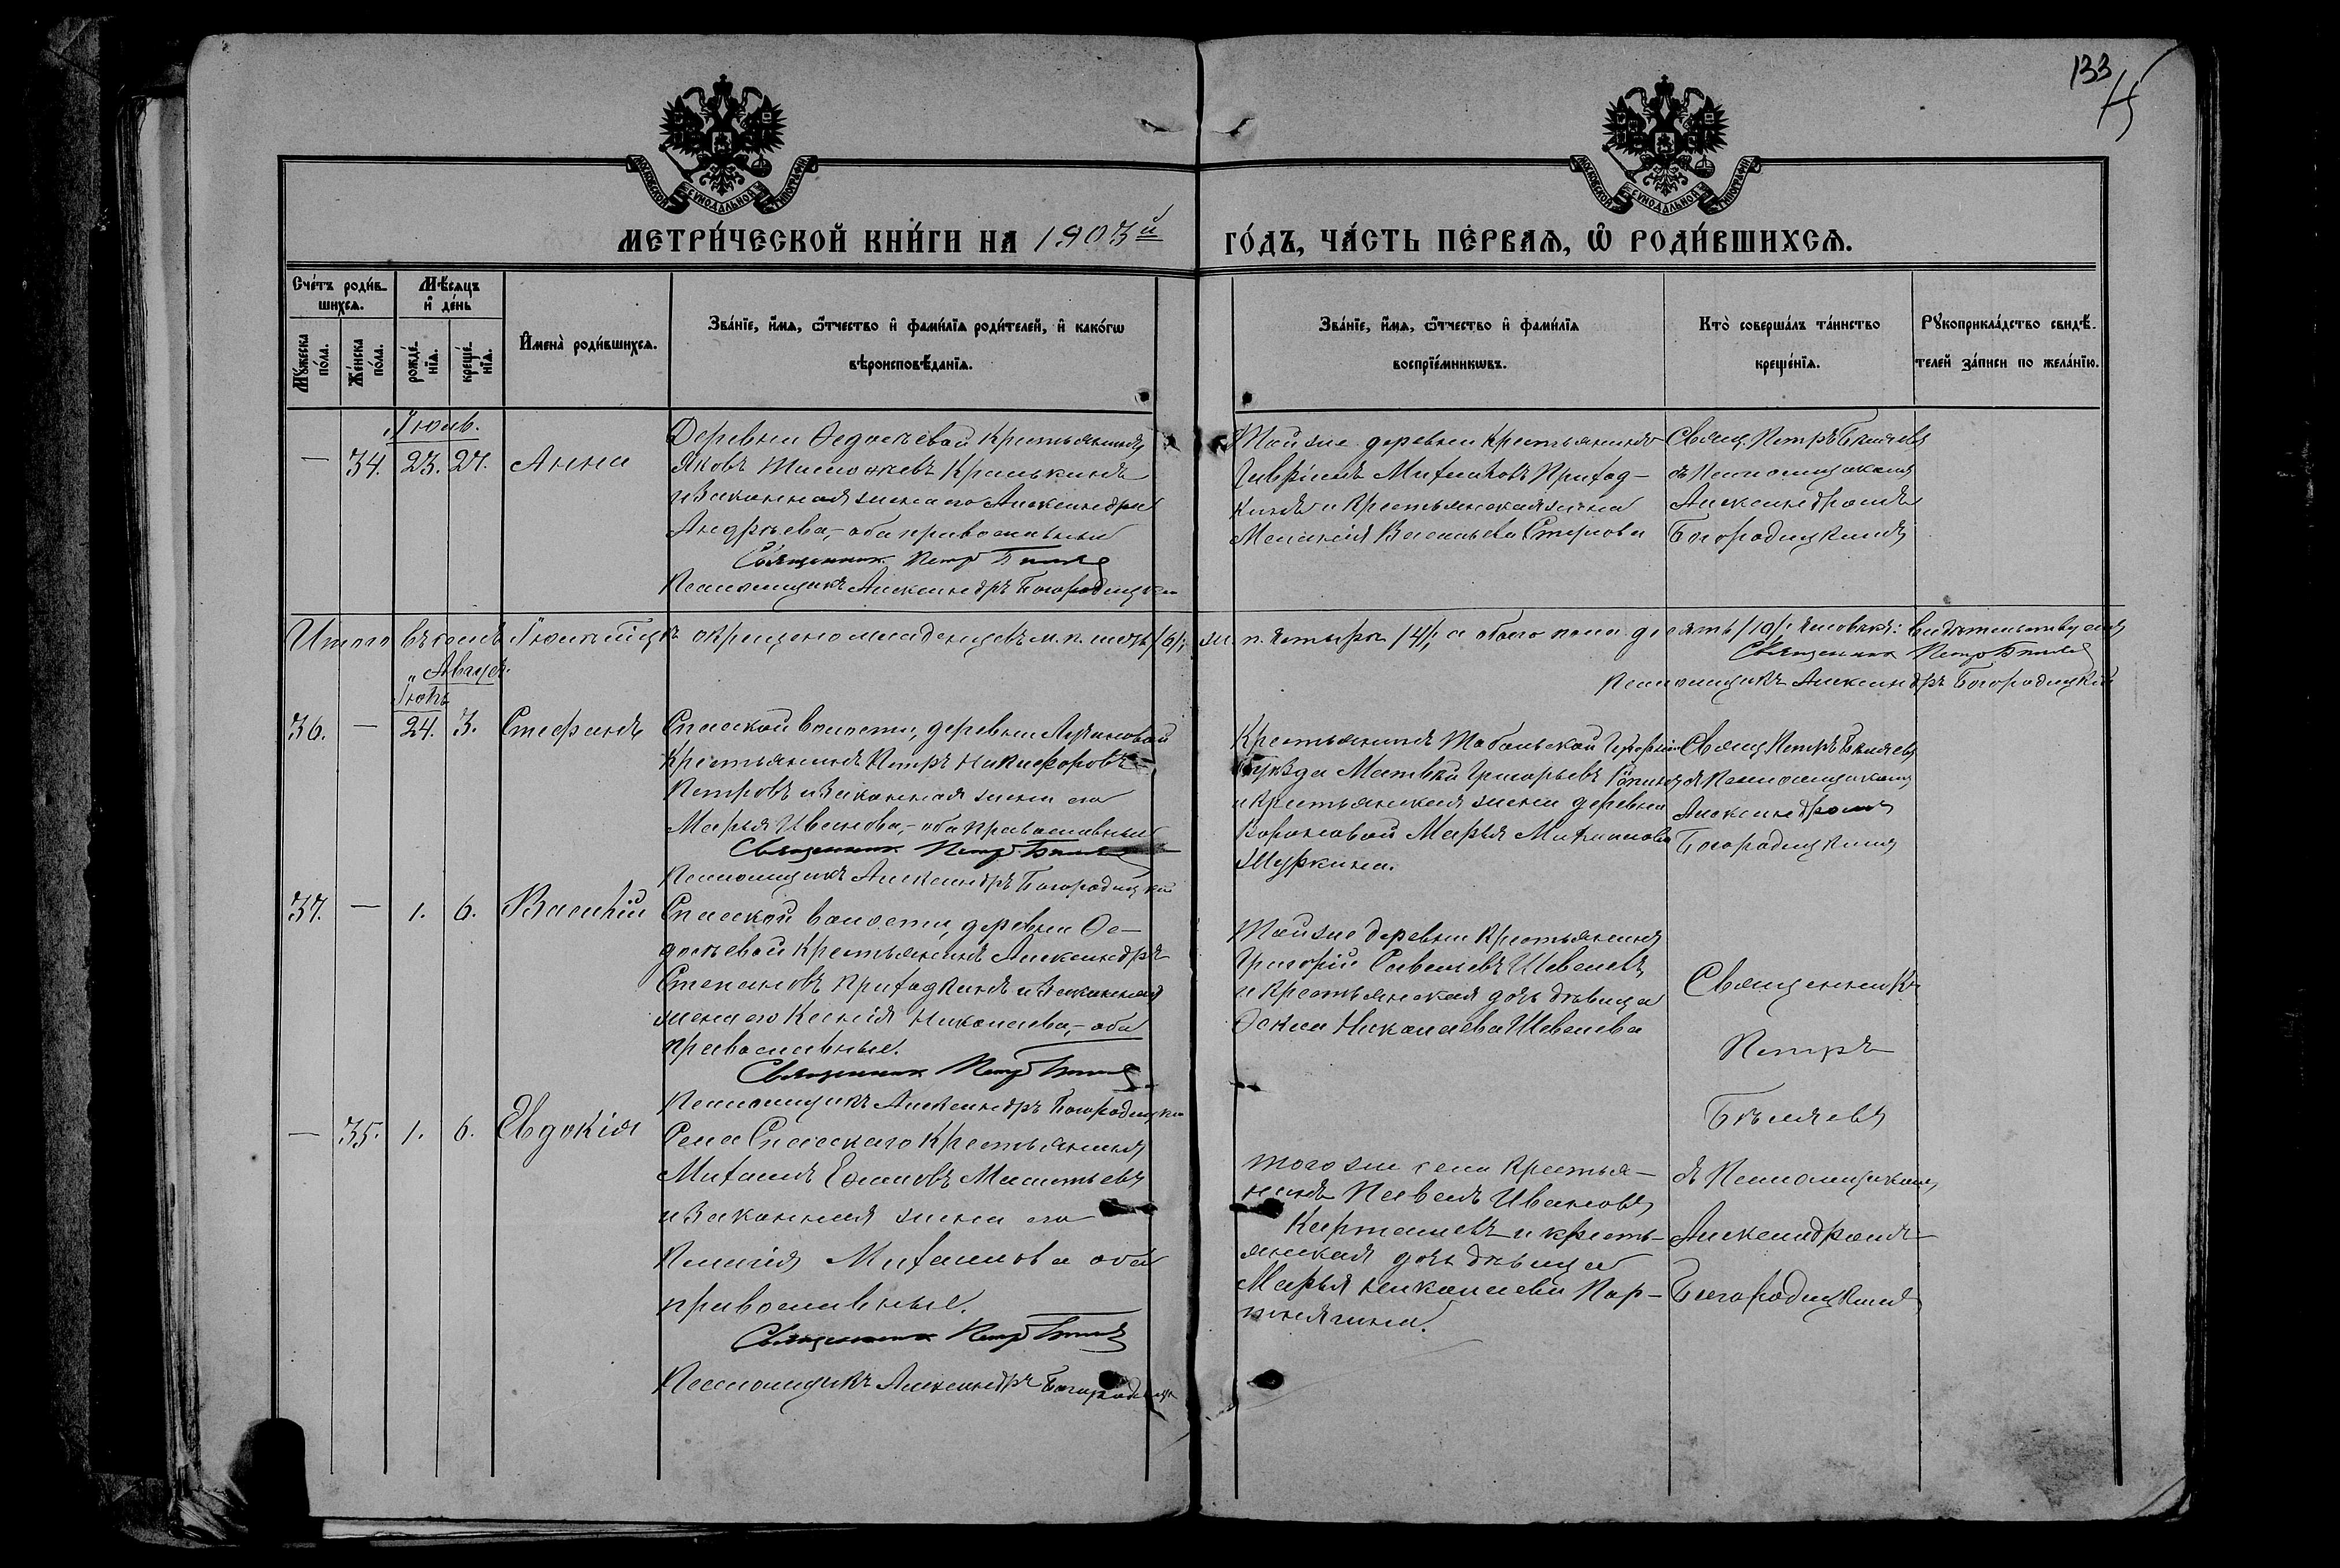 133
МЕТРИ́ЧЕСКОЙ КНИ́ГИ НА 1903й ГО́ДЪ, ЧА́СТЬ ПЕ́РВАѦ, Ѡ҆ РОДИ́ВШИХСѦ.
Сче́тъ роди́в-
шихсѧ.
Мѣ́сѧцъ
и҆ де́нь
Мꙋ́жеска
по́ла.
Же́нска
по́ла.
рожде́-
нїѧ.
креще́-
нїѧ.
И҆мена̀ роди́вшихсѧ.
Зва́нїе, и҆́мѧ, ѻ҆́тчество и҆ фами́лїѧ роди́телей, и҆ како́гѡ
вѣроисповѣ́данїѧ.
Зва́нїе, и҆́мѧ, ѻ҆́тчество и҆ фами́лїѧ
воспрїе́мникѡвъ.
Кто̀ соверша́лъ та́инство
креще́нїѧ.
Рꙋкоприкла́дство свидѣ́-
телей за́писи по жела́нїю.
Іюль.
— 34. 23. 27. Анна
Деревни Ѳедосѣевой крестьянинъ
Яковъ
и законная жена его Александра
Андрѣева,- оба православные
Священникъ Петръ Бѣляевъ
Псаломщикъ Александръ Богородицкій
Той же деревни крестьянинъ
Гавріилъ Михайловъ Приход-
кинъ и крестьянская жена
Меланія Васильева
Свящ. Петръ Бѣляевъ
съ Псаломщикомъ
Александромъ
Богородицкимъ
Итого въ Іюлѣ м-цѣ окрещено младенцевъ м. п. шесть /6/, ж. п. четыре /4/, а обоего пола десять /10/ человѣкъ: Свидѣтельствуемъ
Священникъ Петръ Бѣляевъ
Псаломщикъ Александръ Богородицкій
Августъ
Іюль
36. — 24. 3. Стефанъ
Спасской волости, деревни
Крестьянинъ Петръ Никифоровъ
Петровъ и законная жена его
Марья Иванова,- оба православные
Священникъ Петръ Бѣляевъ
Псаломщикъ Александръ Богородицкій
Крестьянинъ Тобольской Губерніи
уѣзда Матвѣй Григорьевъ
и крестьянская жена деревни
Вороновой Марья
Шуркина.
Свящ. Петръ Бѣляевъ
съ Псаломщикомъ
Александромъ
Богородицкимъ
37. — 1. 6. Василій
Спасской волости, деревни Ѳе-
досѣевой крестьянинъ Александръ
Степановъ Приходкинъ и законная
жена его Ксенія Николаева,- оба
православные.
Священникъ Петръ Бѣляевъ
Псаломщикъ Александръ Богородицкій
Той же деревни крестьянинъ
Григорій Савельевъ Шевелевъ
и крестьянская дочь дѣвица
Николаева Шевелева
Священникъ
Петръ
Бѣляевъ
— 35. 1. 6. Евдокія
Села Спасскаго крестьянинъ
Михаилъ
и законная жена его
Михайлова оба
православные.
Священникъ Петръ Бѣляевъ
Псаломщикъ Александръ Богородицкій
того же села крестья-
нинъ Павелъ Ивановъ
Карташевъ и кресть-
янская дочь дѣвица
Марья Николаева
съ Псаломщикомъ
Александромъ
Богородицкимъ